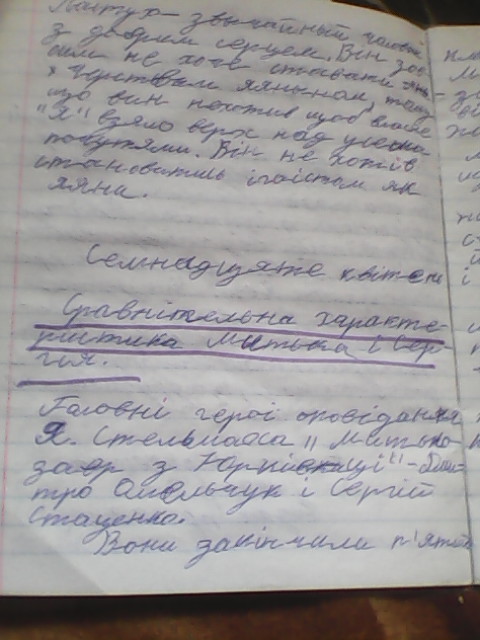 Пастух звычайный чоловік
з добрим серцем. Він зов-
сім не хоче ставати
черствим хяином, тому
що він не хотив щоб власне
"Я" взяло верх над усіма
почутями. Він не хотів
становитись ігоїстом як
хяин.
Семнадцяте квітня
Сравнітельна характе-
ристика Митька і Сер-
гія.
Головні герої оповідання
Я. Стельмаха „Митько-
завр з Юрківки" - Дми-
тро Омельчук і Сергій
Стаценко.
Вони закінчили п'ятий